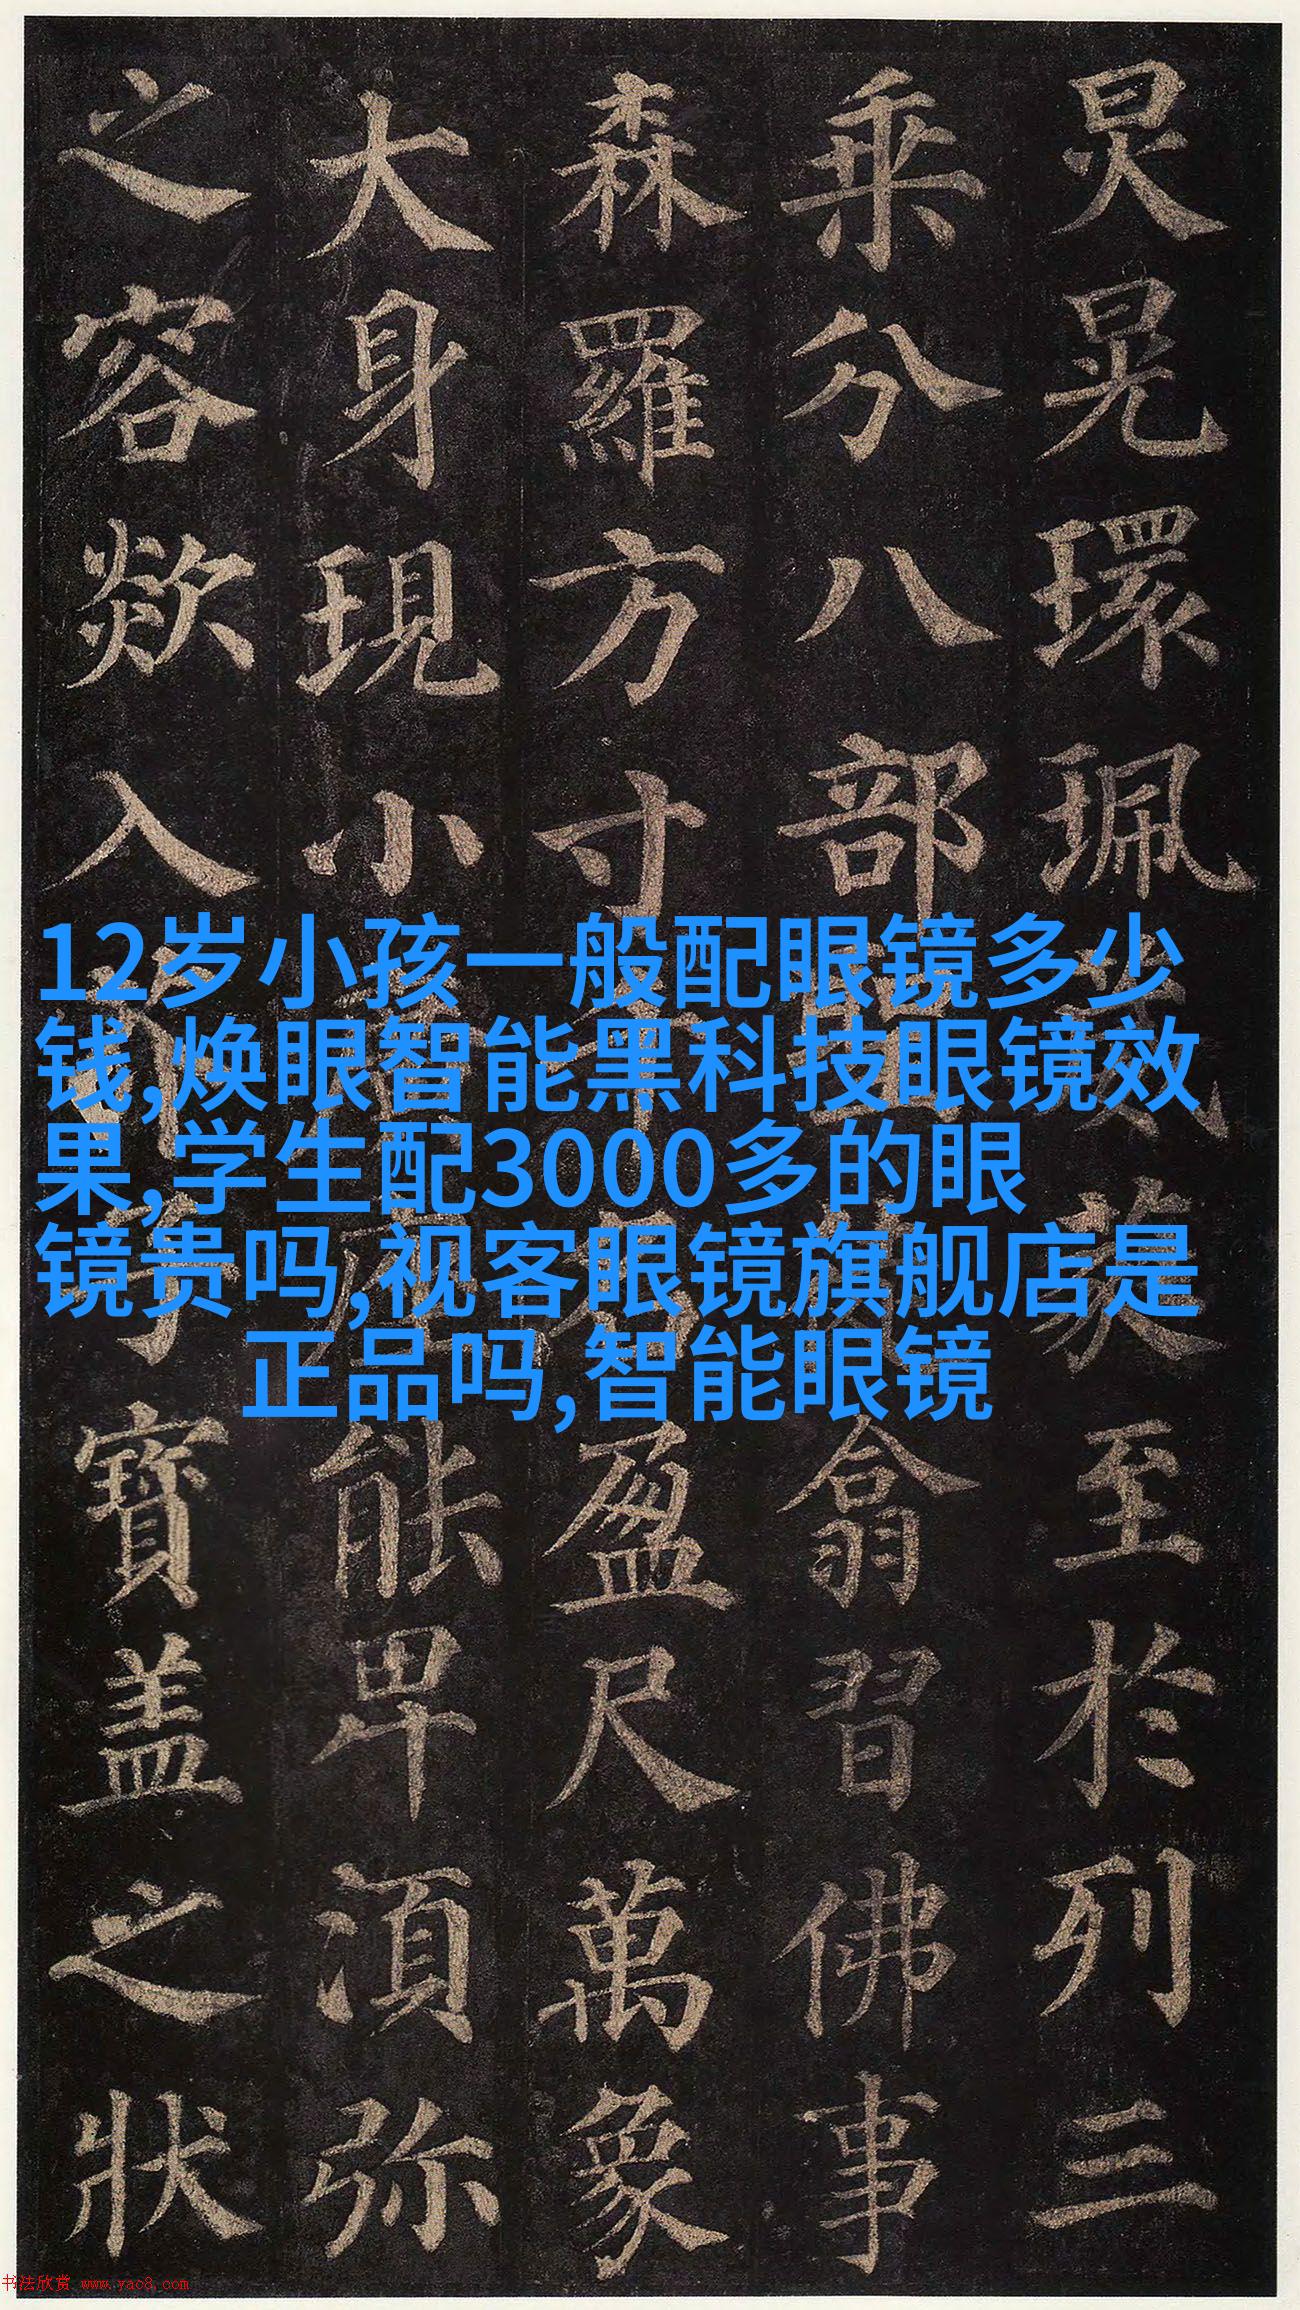 炅晃環珮蕤至於列三
乘分八部翕習佛事
森羅方寸千名盈尺萬象
大身現小能卑須弥
之容欻入子寶盖之狀
12岁小孩一般配眼镜多少
钱,焕眼智能黑科技眼镜效
果,学生配3000多的眼
镜贵吗,视客眼镜旗舰店是
正品吗,智能眼镜
书法欣赏 www.yac8.com